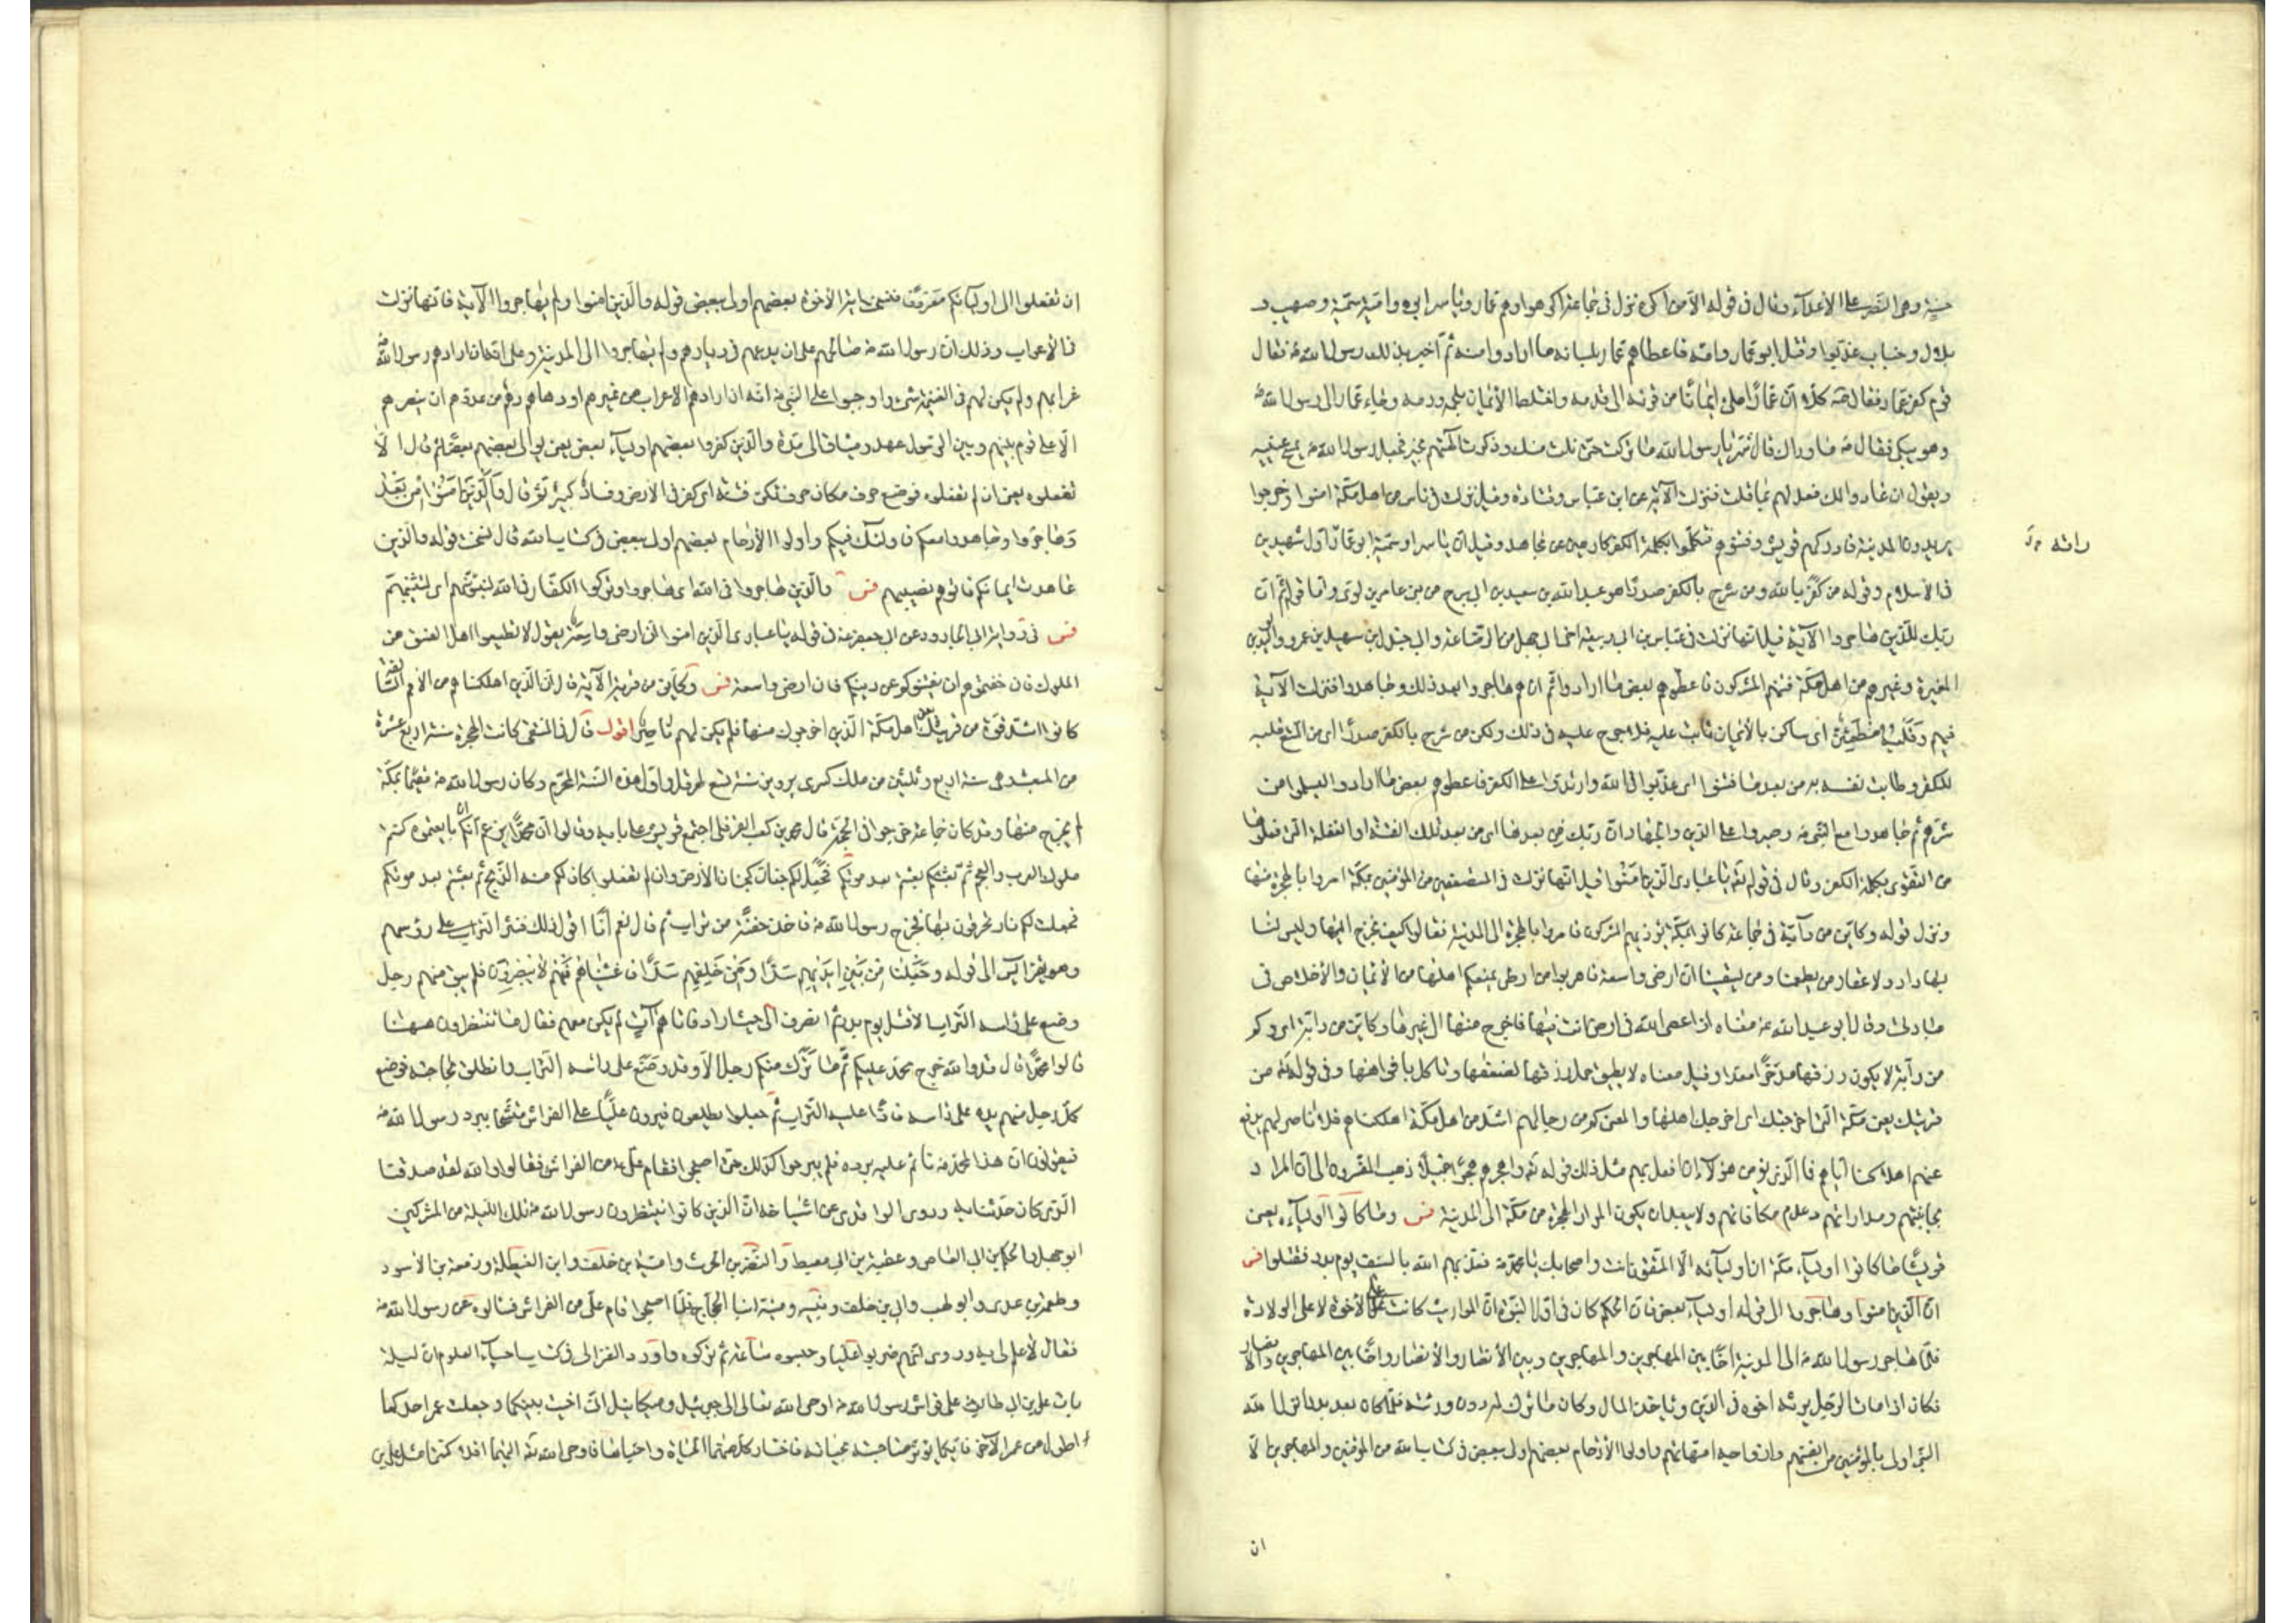 حسنة وهى النصر على الأعداء وقال فى قوله الا من اكره نزل فى جماعة اكرهوا وهم عمار وياسر ابوه وامه سمية وصهيب و
بلال وخباب عذبوا وقتل ابو عمار وامه فاعطاهم عمار بلسانه ما ارادوا منه ثم اخبر بذلك رسول الله ص فقال
قوم كفر عمار فقال ص كلا ان عمارا ملئ ايمانا من قرنه الى قدمه واختلط الأيمان بلحمه ودمه وجاء عمار الى رسول الله ص
وهو يبكى فقال ص ما وراك قال شر يا رسول الله ما تركت حتى نلت منك وذكرت آلهتهم بخير فجعل رسول الله ص يمسح عينيه
ويقول ان عادوا لك فعد لهم بما قلت فنزلت الآية عن ابن عباس وقتادة وقيل نزلت فى ناس من اهل مكة امنوا وخرجوا
يريدون المدينة فادركهم قريش وفتنوهم فتكلموا بكلمة الكفر كارهين عن مجاهد وقيل ان ياسرا وسمية ابوى عمار اول شهيدين
فى الأسلام وقوله من كفر بالله ومن شرح بالكفر صدرا هو عبد الله بن سعد بن ابى سرح من بنى عامر بن لوى واما قوله ثم ان
ربك للذين هاجروا الآية قيل انها نزلت فى عياش بن ابى ربيعة اخى ابى جهل من الرضاعة وابى جندل ابن سهيل بن عمرو والوليد بن
المغيرة وغيرهم من اهل مكة فتنهم المشركون فاعطوهم بعض ما ارادوا ثم انهم هاجروا بعد ذلك وجاهدوا فنزلت الآية
فيهم وقلبه مطمئن اى ساكن بالأيمان ثابت عليه فلا حرج عليه فى ذلك ولكن من شرح بالكفر صدرا اى من اتسع قلبه
للكفر وطابت نفسه به من بعد ما فتنوا اى عذبوا فى الله وارتدوا على الكفر فاعطوهم بعض ما ارادوا ليسلموا من
شرهم ثم جاهدوا مع النبى ص وصبروا على الدين والجهاد ان ربك من بعدها اى من بعد تلك الفتنة او الفعلة التى فعلوها
من التفوه بكلمة الكفر وقال فى قوله تعالى يا عبادى الذين امنوا قيل انها نزلت فى المستضعفين من المؤمنين بمكة امروا بالهجرة منها
ونزل قوله وكاين من دآبة فى جماعة كانوا بمكة يؤذيهم المشركون فامروا بالهجرة الى المدينة فقالوا كيف نخرج اليها وليس لنا
بها دار ولا عقار من يطعمنا ومن يسقينا ان ارضى واسعة فاهربوا من ارض يمنعكم اهلها من الأيمان والأخلاص فى
عبادتى وقال ابو عبد الله ع معناه اذا عصى الله فى ارض انت فيها فاخرج منها الى غيرها وكاين من دابة اى وكم
من دآبة لا يكون رزقها مدخرا معدا وقيل معناه لا يطيق حمل رزقها لضعفها وتاكل بافواهها وفى قوله تعالى من
قريتك يعنى مكة التى اخرجتك اى اخرجك اهلها والمعنى كم من رجال هم اشد من اهل مكة اهلكناهم فلا ناصر لهم يدفع
عنهم اهلاكنا اياهم فما الذى يؤمن هؤلاء ان افعل بهم مثل ذلك قوله تعالى واهجرهم هجرا جميلا ذهب المفسرون الى ان المراد
مجانبتهم ومداراتهم وعدم مكافاتهم ولا يبعد ان يكون المراد الهجرة من مكة الى المدينة فس وما كانوا اولياءه يعنى
قريشا ما كانوا اولياء مكة ان اولياؤه الا المتقون انت واصحابك يا محمد ص فعذبهم الله بالسيف يوم بدر فقتلوا فس
ان الذين امنوا وهاجروا الى قوله اولياء بعض فان الحكم كان فى اول النبوة ان المواريث كانت على الأخوة لا على الولادة
فلما هاجر رسول الله ص الى المدينة اخا بين المهاجرين والمهاجرين وبين الأنصار والأنصار واخا بين المهاجرين والأنصار
فكان اذا مات الرجل يرثه اخوه فى الدين وياخذ المال وكان ما ترك له دون ورثته فلما كان بعد بدر انزل الله
النبى اولى بالمؤمنين من انفسهم وازواجه امهاتهم واولوا الأرحام بعضهم اولى ببعض فى كتاب الله من المؤمنين والمهاجرين الا
ان
ان تفعلوا الى اوليائكم معروفا فنسخت اية الأخوة بعضهم اولى ببعض قوله والذين امنوا ولم يهاجروا الآية فانها نزلت
فى الأعراب وذلك ان رسول الله ص صالحهم على ان يدعهم فى ديارهم ولم يهاجروا الى المدينة وعلى انه ان ارادهم رسول الله ص
غزا بهم ولم يكن لهم فى الغنيمة شئ واوجبوا على النبى ص انه ان ارادهم الأعراب من غيرهم او دهاهم دهم من عدوهم ان ينصرهم
الا على قوم بينهم وبين الرسول عهد وميثاق الى مدة والذين كفروا بعضهم اولياء بعض يعنى يوالى بعضهم بعضا ثم قال الا
تفعلوه يعنى ان لم تفعلوه فوضع حرف مكان حرف تكن فتنة اى كفر فى الأرض وفساد كبير ثم قال والذين امنوا من بعد
وهاجروا وجاهدوا معكم فاولئك منكم واولوا الأرحام بعضهم اولى ببعض فى كتاب الله قال نسخت قوله والذين
عاهدت ايمانكم فاتوهم نصيبهم فس والذين هاجروا فى الله اى هاجروا وتركوا الكفار فى الله لنبوئنهم اى لنثيبنهم
فس فى رواية ابى الجارود عن ابى جعفر ع فى قوله يا عبادى الذين امنوا ان ارضى واسعة يقول لا تطيعوا اهل الفسق من
الملوك فان خفتموهم ان يفتنوكم عن دينكم فان ارضى واسعة فس وكاين من قرية الآية قال ان الذين اهلكناهم من الأمم السالفة
كانوا اشد قوة من قريتك يعنى اهل مكة الذين اخرجوك منها فلم يكن لهم ناصر اقول قال فى المنتقى كانت الهجرة سنة اربع عشرة
من المبعث وهى سنة اربع وثلثين من ملك كسرى پرويز سنة تسع لهرقل واول هذه السنة المحرم وكان رسول الله ص مقيما بمكة
لم يخرج منها وقد كان جماعة خرجوا فى الحجة قال محمد بن كعب القرظى اجتمع قريش على بابه وقالوا ان محمدا يزعم انكم ان بايعتموه كنتم
ملوك العرب والعجم ثم بعثتم بعد موتكم فجعل لكم جنان كجنان الأردن وان لم تفعلوا كان لكم منه الذبح ثم بعثتم بعد موتكم
فجعلت لكم نار تحرقون بها فخرج رسول الله ص فاخذ حفنة من تراب ثم قال نعم انا اقول ذلك فنثر التراب على رؤسهم
وهو يقرأ يس الى قوله وجعلنا من بين ايديهم سدا ومن خلفهم سدا فاغشيناهم فهم لا يبصرون فلم يبق منهم رجل
وضع على راسه التراب الا قتل يوم بدر ثم انصرف الى حيث اراد فاتاهم آت لم يكن معهم فقال ما تنتظرون ههنا
قالوا محمدا قال قد والله خرج محمد عليكم ثم ما ترك منكم رجلا الا وقد وضع على راسه التراب وانطلق لحاجته فوضع
كل رجل منهم يده على راسه فاذا عليه التراب ثم جعلوا يطلعون فيرون عليا على الفراش متشحا ببرد رسول الله ص
فيقولون ان هذا لمحمد ص نائم عليه برده فلم يبرحوا كذلك حتى اصبحوا فقام على ع من الفراش فقالوا والله لقد صدقنا
الذى كان حدثنا به وروى الواقدى عن اشياخه ان الذين كانوا ينتظرون رسول الله ص تلك الليلة من المشركين
ابو جهل والحكم بن ابى العاص وعقبة بن ابى معيط والنضر بن الحرث وامية بن خلف وابن الغيطلة وزمعة بن الأسود
وطعمة بن عدى وابو لهب وابى بن خلف ونبيه ومنبه ابنا الحجاج فلما اصبحوا قام على من الفراش فسالوه عن رسول الله ص
فقال لا علم لى به وروى انهم ضربوا عليا وحبسوه ساعة ثم تركوه واورد الغزالى فى كتاب احياء العلوم ان ليلة
بات على بن ابى طالب على فراش رسول الله ص اوحى الله تعالى الى جبرئيل وميكائيل انى اخيت بينكما وجعلت عمر احدكما
اطول من عمر الآخر فايكما يؤثر صاحبه بحيوته فاختار كل منهما الحياة واحباها فاوحى الله تعالى اليهما افلا كنتما مثل على بن